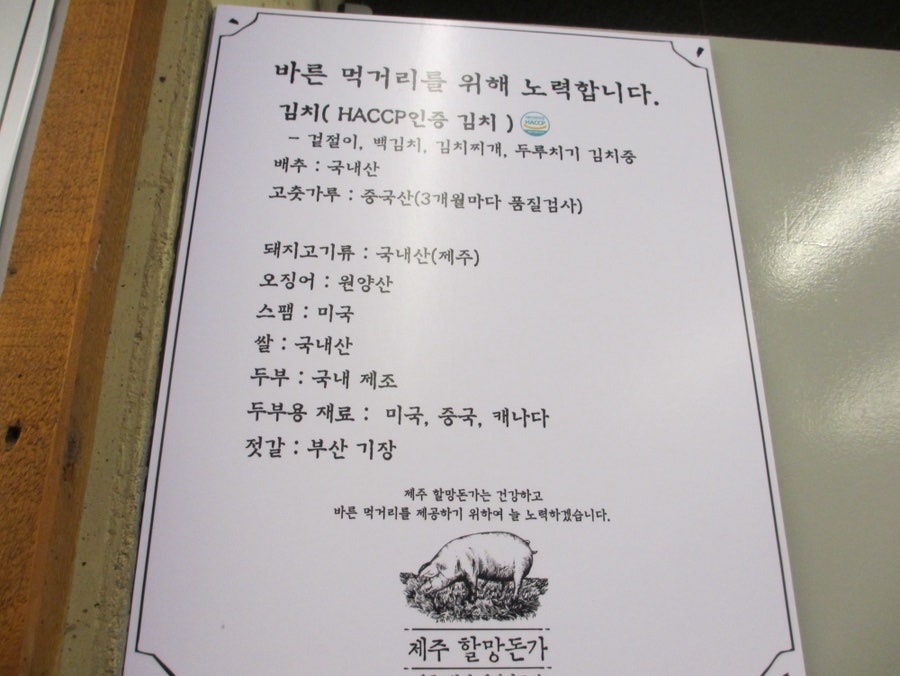 바른 먹거리를 위해 노력합니다.
김치( HACCP인증 김치 ) HACCP
- 겉절이, 백김치, 김치찌개, 두루치기 김치중
배추 : 국내산
고춧가루 : 중국산(3개월마다 품질검사)
돼지고기류 : 국내산(제주)
오징어 : 원양산
스팸 : 미국
쌀 : 국내산
두부 : 국내 제조
두부용 재료 : 미국, 중국, 캐나다
젓갈 : 부산 기장
제주 할망돈가는 건강하고
바른 먹거리를 제공하기 위하여 늘 노력하겠습니다.
제주 할망돈가